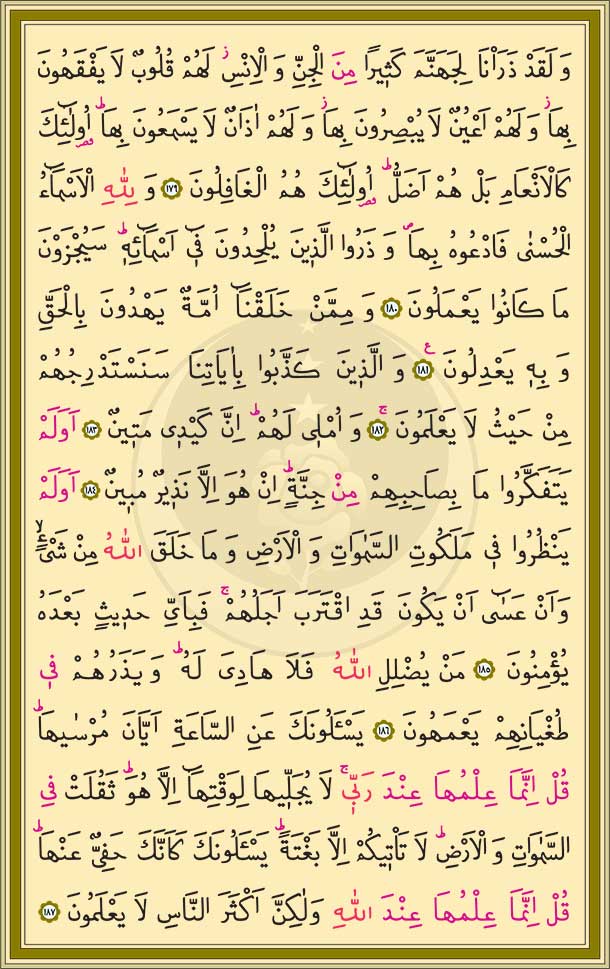 وَ لَقَدْ ذَرَأْنَا لِجَهَنَّمَ كَثٖيرًا مِنَ الْجِنِّ وَ الْاِنْسِؗ لَهُمْ قُلُوبٌ لَا يَفْقَهُونَ
بِهَاؗ وَ لَهُمْ اَعْيُنٌ لَا يُبْصِرُونَ بِهَاؗ وَ لَهُمْ اٰذَانٌ لَا يَسْمَعُونَ بِهَاؕ اُولٰٓئِكَ
كَالْاَنْعَامِ بَلْ هُمْ اَضَلُّؕ اُولٰٓئِكَ هُمُ الْغَافِلُونَ ﴿١٧٩﴾ وَ لِلّٰهِ الْاَسْمَٓاءُ
الْحُسْنٰى فَادْعُوهُ بِهَاࣕ وَ ذَرُوا الَّذٖينَ يُلْحِدُونَ فٖٓى اَسْمَٓائِهٖؕ سَيُجْزَوْنَ
مَا كَانُوا يَعْمَلُونَ ﴿١٨٠﴾ وَ مِمَّنْ خَلَقْنَٓا اُمَّةٌ يَهْدُونَ بِالْحَقِّ
وَ بِهٖ يَعْدِلُونَࣖ ﴿١٨١﴾ وَ الَّذٖينَ كَذَّبُوا بِاٰيَاتِنَا سَنَسْتَدْرِجُهُمْ
مِنْ حَيْثُ لَا يَعْلَمُونَۚ ﴿١٨٢﴾ وَ اُمْلٖى لَهُمْؕ اِنَّ كَيْدٖى مَتٖينٌ ﴿١٨٣﴾ اَوَلَمْ
يَتَفَكَّرُوا مَا بِصَاحِبِهِمْ مِنْ جِنَّةٍؕ اِنْ هُوَ اِلَّا نَذٖيرٌ مُبٖينٌ ﴿١٨٤﴾ اَوَلَمْ
يَنْظُرُوا فٖى مَلَكُوتِ السَّمٰوَاتِ وَ الْاَرْضِ وَ مَا خَلَقَ اللّٰهُ مِنْ شَیْءٍۙ
وَاَنْ عَسٰٓى اَنْ يَكُونَ قَدِ اقْتَرَبَ اَجَلُهُمْۚ فَبِاَىِّ حَدٖيثٍ بَعْدَهُ
يُؤْمِنُونَ ﴿١٨٥﴾ مَنْ يُضْلِلِ اللّٰهُ فَلَا هَادِىَ لَهُؕ وَ يَذَرُهُمْ فٖى
طُغْيَانِهِمْ يَعْمَهُونَ ﴿١٨٦﴾ يَسْـَٔلُونَكَ عَنِ السَّاعَةِ اَيَّانَ مُرْسٰيهَاؕ
قُلْ اِنَّمَا عِلْمُهَا عِنْدَ رَبّٖىۚ لَا يُجَلّٖيهَا لِوَقْتِهَٓا اِلَّا هُوَؕ ثَقُلَتْ فِى
السَّمٰوَاتِ وَ الْاَرْضِؕ لَا تَاْتٖيكُمْ اِلَّا بَغْتَةًؕ يَسْـَٔلُونَكَ كَاَنَّكَ حَفِىٌّ عَنْهَاؕ
قُلْ اِنَّمَا عِلْمُهَا عِنْدَ اللّٰهِ وَلٰكِنَّ اَكْثَرَ النَّاسِ لَا يَعْلَمُونَ ﴿١٨٧﴾